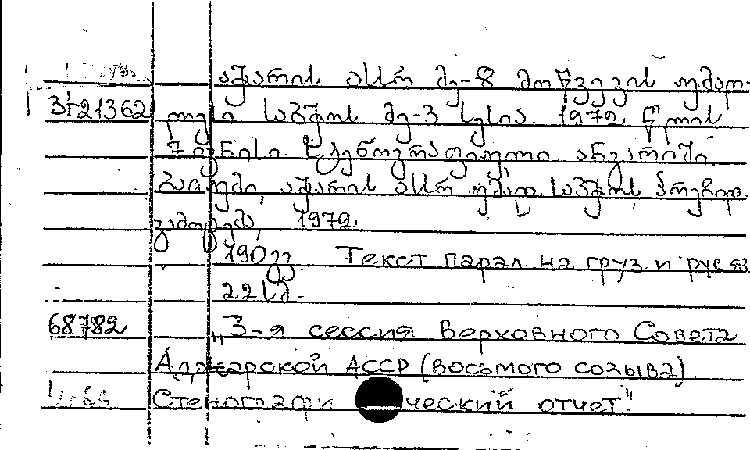 აჭარის ასსრ მე-8 მოწვევის უმაღ-
3-21362 ლესი საბჭოს მე-3 სესია. 1972 წლის
7 ივნისი სტენოგრაფიული ანგარიში
ბათუმი, აჭარის ასსრ უმაღ. საბჭოს პრეზიდ.
გამოცემა, 1972.
190 გვ Текст парал на груз и русяз
22 სმ.
68782 „3-я сессия Верховного Совета
Аджарской АССР (восьмого созыва)
Стенографический отчет"